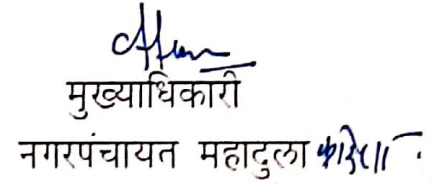 मुख्याधिकारी
नगरपंचायत महादुला